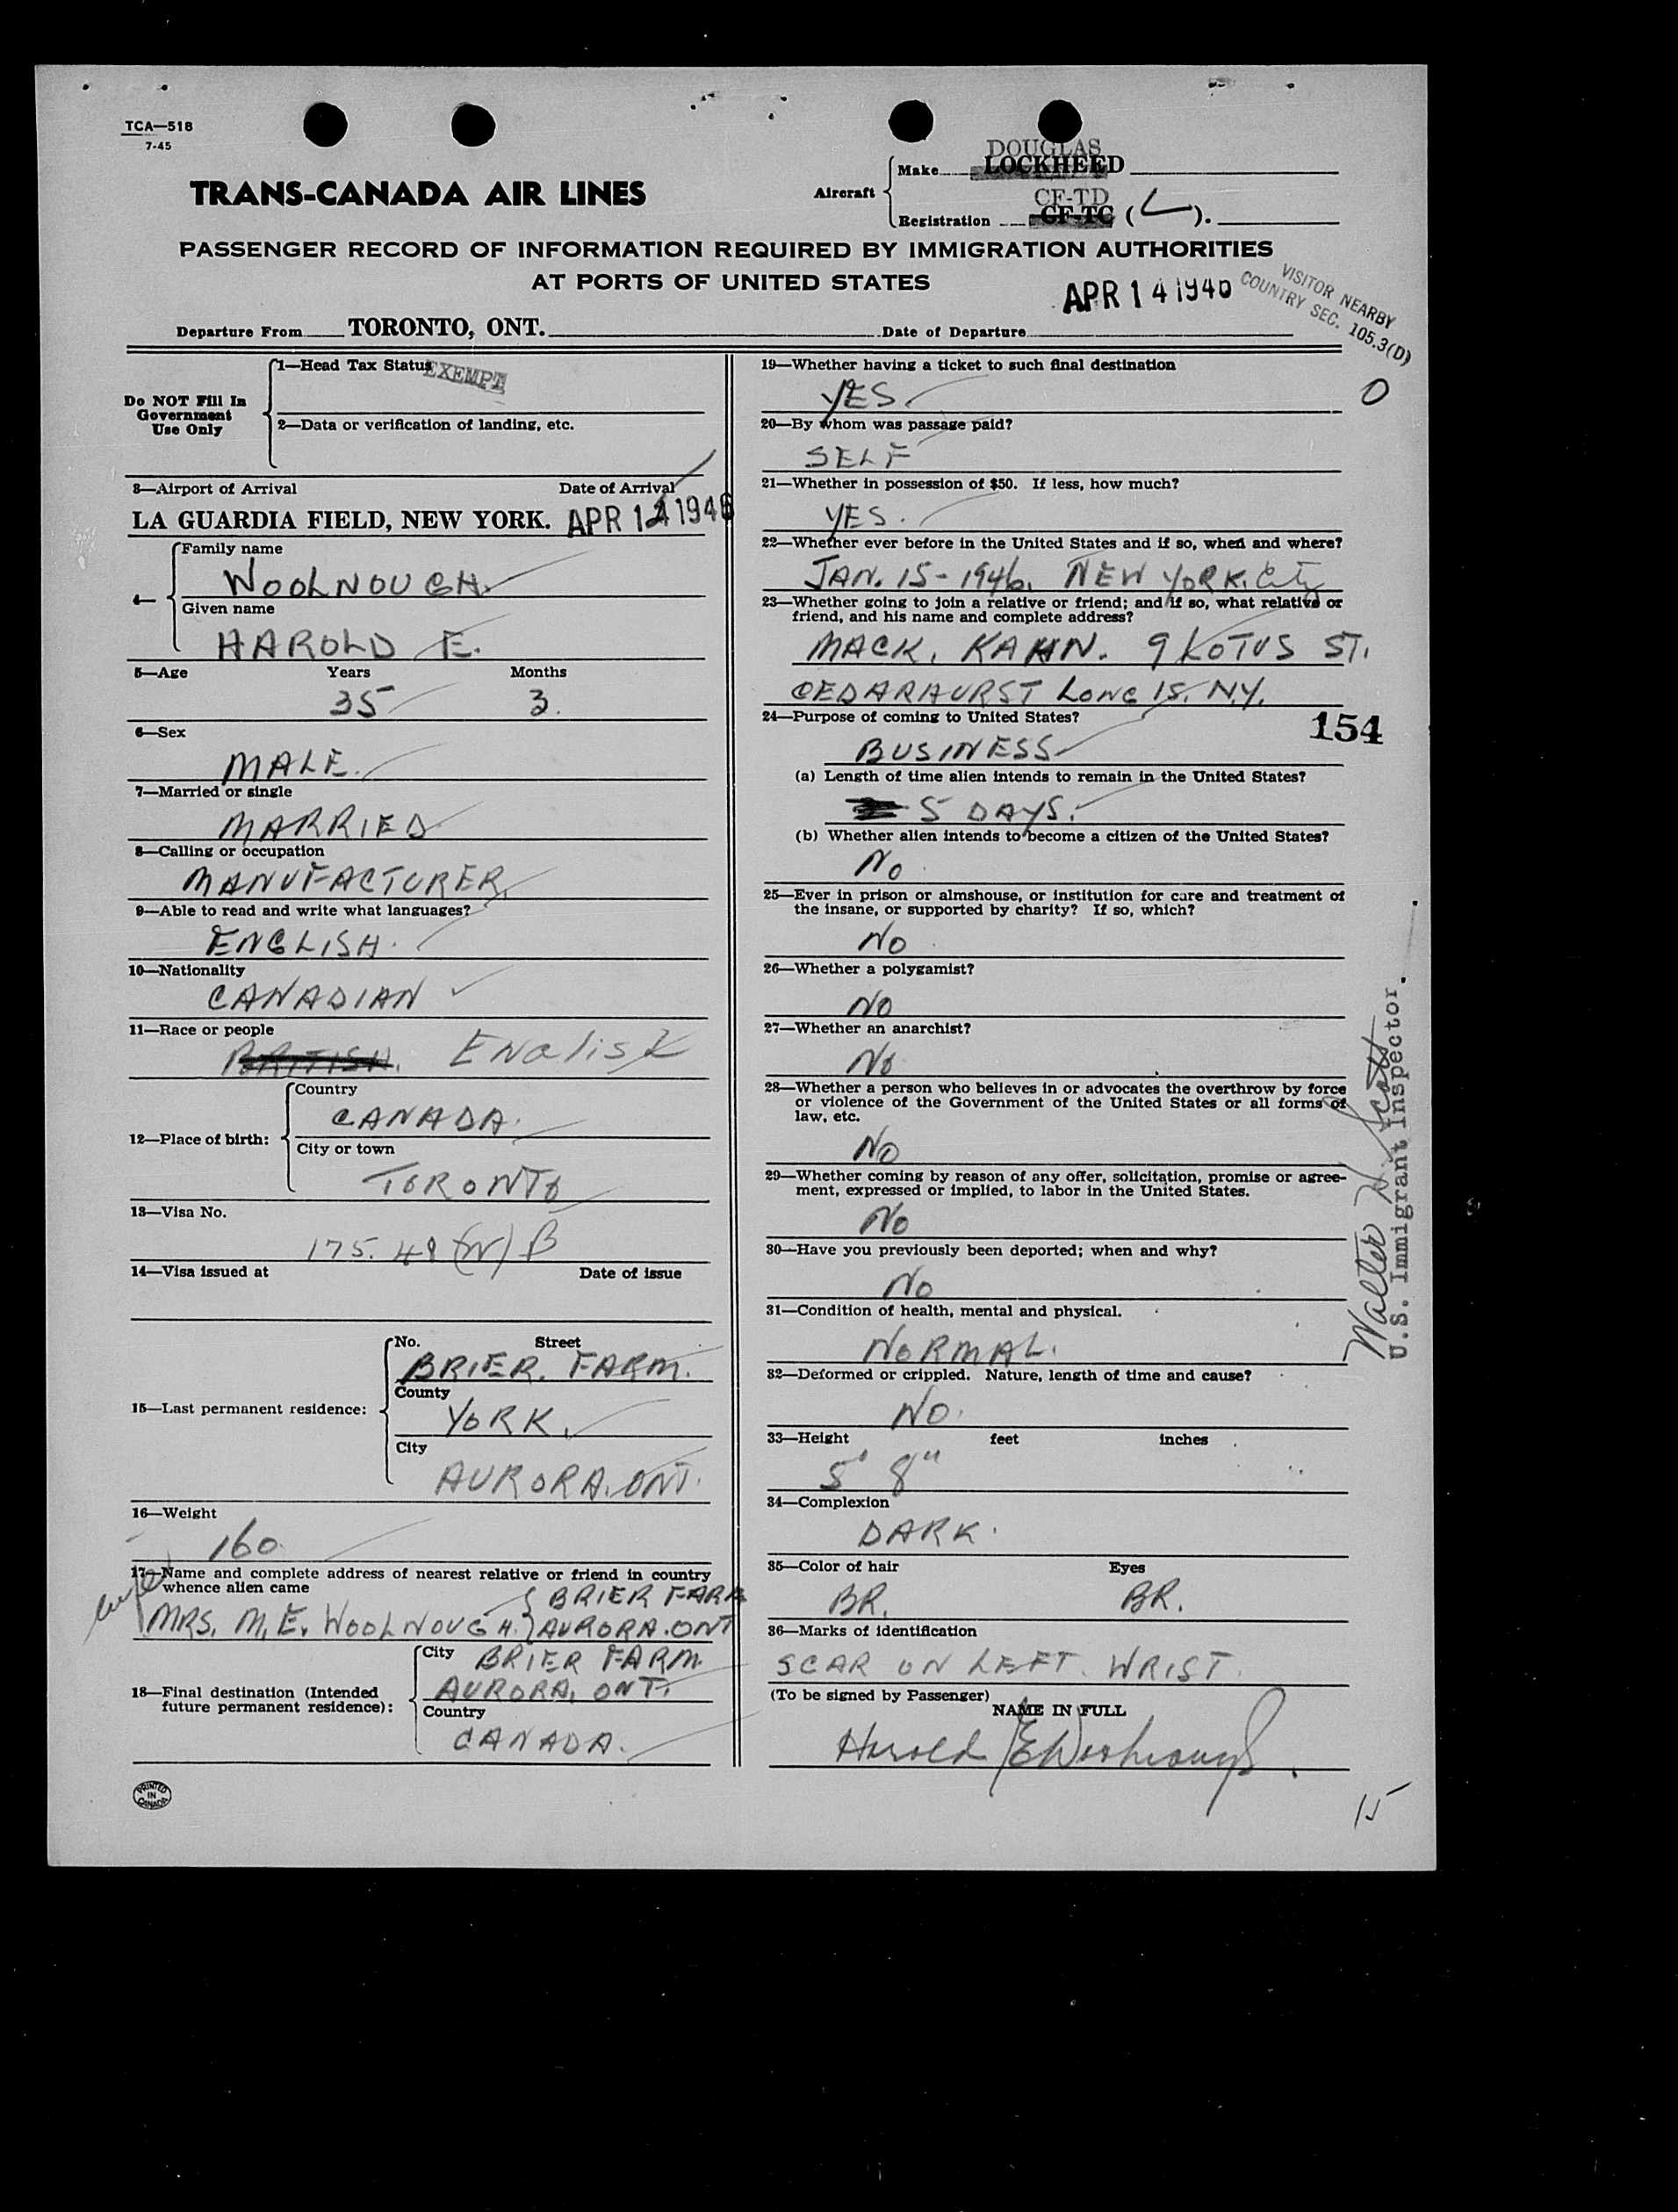 TCA—518
7-45
TRANS-CANADA AIR LINES
Aircraft
Make DOUGLAS
LOCKHEED
Registration CF-TD
CF-TC (L).
PASSENGER RECORD OF INFORMATION REQUIRED BY IMMIGRATION AUTHORITIES
AT PORTS OF UNITED STATES
APR 14 1946
VISITOR NEARBY
COUNTRY SEC. 105.3(D)
Departure From TORONTO, ONT. Date of Departure
Do NOT Fill In
Government
Use Only
1—Head Tax Status EXEMPT
2—Data or verification of landing, etc.
3—Airport of Arrival Date of Arrival
LA GUARDIA FIELD, NEW YORK. APR 14 1946
4—
Family name
WOOLNOUGH.
Given name
HAROLD E.
5—Age Years Months
35 3.
6—Sex
MALE.
7—Married or single
MARRIED
8—Calling or occupation
MANUFACTURER.
9—Able to read and write what languages?
ENGLISH.
10—Nationality
CANADIAN
11—Race or people
BRITISH. English
12—Place of birth:
Country
CANADA.
City or town
TORONTO
13—Visa No.
175.48 (W) B
14—Visa issued at Date of issue
15—Last permanent residence:
No. Street
BRIER. FARM.
County
YORK.
City
AURORA. ONT.
16—Weight
160
17—Name and complete address of nearest relative or friend in country
whence alien came
wife
MRS. M.E. WOOLNOUGH. } BRIER FARM
AURORA. ONT
18—Final destination (Intended
future permanent residence):
City BRIER FARM
AURORA, ONT.
Country
CANADA.
PRINTED
IN
CANADA
19—Whether having a ticket to such final destination
YES
0
20—By whom was passage paid?
SELF
21—Whether in possession of $50. If less, how much?
YES.
22—Whether ever before in the United States and if so, when and where?
JAN. 15-1946. NEW YORK. City
23—Whether going to join a relative or friend; and if so, what relative or
friend, and his name and complete address?
MACK. KAHN. 9 KOTUS ST.
CEDARHURST LONG IS. N.Y.
24—Purpose of coming to United States?
154
BUSINESS
(a) Length of time alien intends to remain in the United States?
5 DAYS.
(b) Whether alien intends to become a citizen of the United States?
NO
25—Ever in prison or almshouse, or institution for care and treatment of
the insane, or supported by charity? If so, which?
NO
26—Whether a polygamist?
NO
27—Whether an anarchist?
NO
28—Whether a person who believes in or advocates the overthrow by force
or violence of the Government of the United States or all forms of
law, etc.
NO
29—Whether coming by reason of any offer, solicitation, promise or agree-
ment, expressed or implied, to labor in the United States.
NO
30—Have you previously been deported; when and why?
NO
31—Condition of health, mental and physical.
NORMAL.
32—Deformed or crippled. Nature, length of time and cause?
NO.
33—Height feet inches
5' 8"
34—Complexion
DARK.
35—Color of hair Eyes
BR. BR.
36—Marks of identification
SCAR ON LEFT. WRIST.
(To be signed by Passenger)
NAME IN FULL
Harold E Woolnough.
Walter H. Scott
U.S. Immigrant Inspector.
15